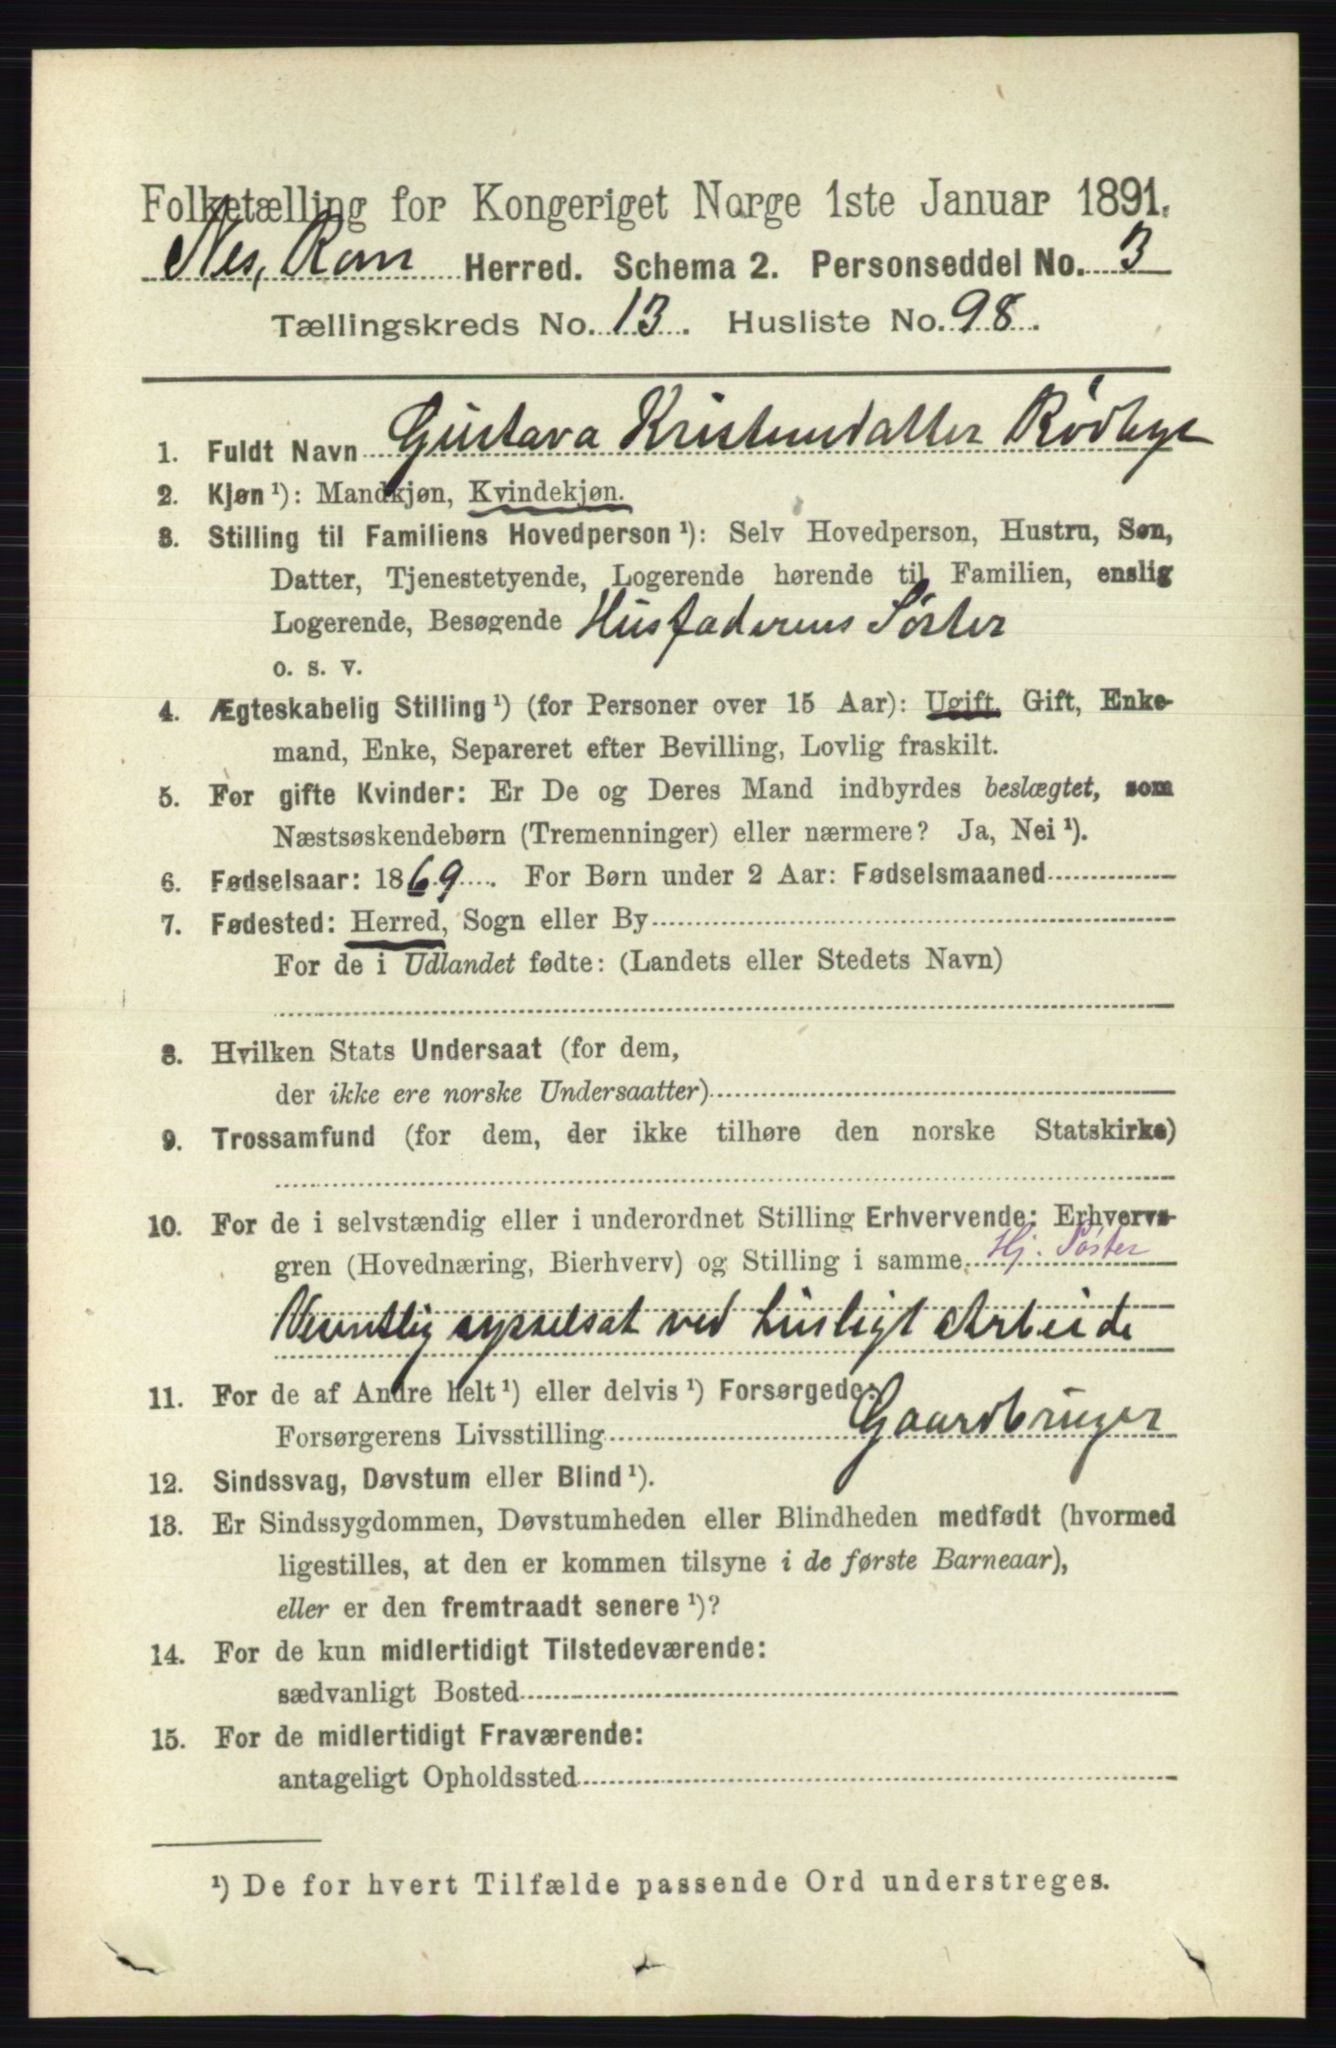 Folketælling for Kongeriget Norge 1ste Januar 1891.
Nes, Rom Herred. Schema 2. Personseddel No. 3
Tællingskreds No. 13. Husliste No. 98.
1. Fuldt Navn Gustava Kristensdatter Rødbye
2. Kjøn ¹): Mandkjøn, Kvindekjøn.
3. Stilling til Familiens Hovedperson ¹): Selv Hovedperson, Hustru, Søn,
Datter, Tjenestetyende, Logerende hørende til Familien, enslig
Logerende, Besøgende Husfaderens Søster
o. s. v.
4. Ægteskabelig Stilling ¹) (for Personer over 15 Aar): Ugift, Gift, Enke-
mand, Enke, Separeret efter Bevilling, Lovlig fraskilt.
5. For gifte Kvinder: Er De og Deres Mand indbyrdes beslægtet, som
Næstsøskendebørn (Tremenninger) eller nærmere? Ja, Nei ¹).
6. Fødselsaar: 1869. For Børn under 2 Aar: Fødselsmaaned
7. Fødested: Herred, Sogn eller By
For de i Udlandet fødte: (Landets eller Stedets Navn)
8. Hvilken Stats Undersaat (for dem,
der ikke ere norske Undersaatter)
9. Trossamfund (for dem, der ikke tilhøre den norske Statskirke)
10. For de i selvstændig eller i underordnet Stilling Erhvervende: Erhvervs-
gren (Hovednæring, Bierhverv) og Stilling i samme. Hj. Søster
Væsentlig sysselsat ved husligt Arbeide
11. For de af Andre helt ¹) eller delvis ¹) Forsørgede:
Forsørgerens Livsstilling Gaardbruger
12. Sindssvag, Døvstum eller Blind ¹).
13. Er Sindssygdommen, Døvstumheden eller Blindheden medfødt (hvormed
ligestilles, at den er kommen tilsyne i de første Barneaar),
eller er den fremtraadt senere ¹)?
14. For de kun midlertidigt Tilstedeværende:
sædvanligt Bosted
15. For de midlertidigt Fraværende:
antageligt Opholdssted
¹) De for hvert Tilfælde passende Ord understreges.